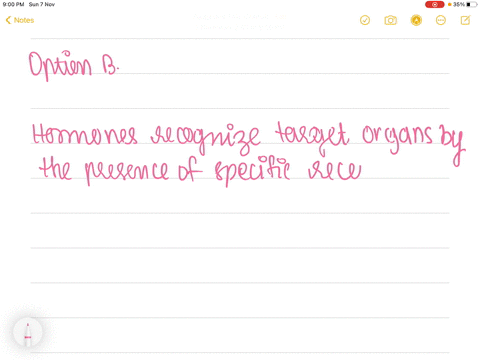 9:00 PM Sun 7 Nov
35%
Notes
Option B.
Hormones recognize target organs by
the presence of specific rece